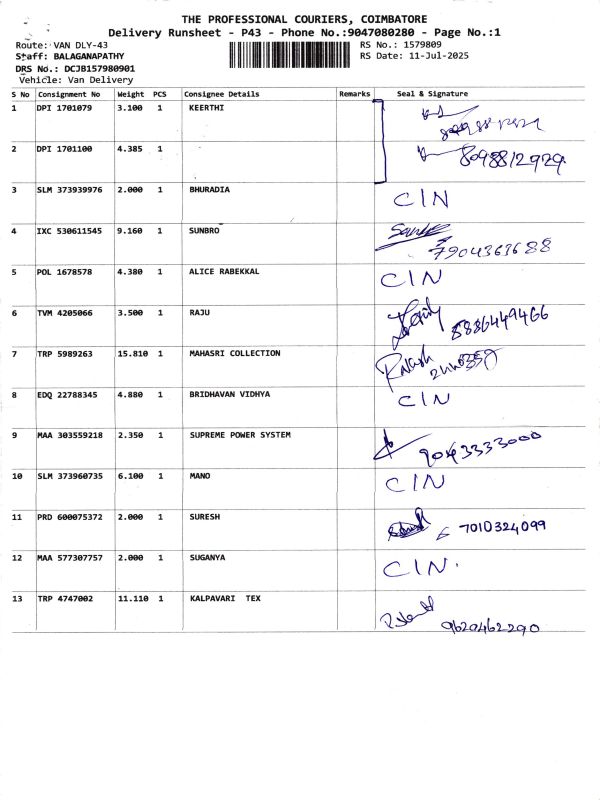 THE PROFESSIONAL COURIERS, COIMBATORE
Delivery Runsheet - P43 - Phone No.:9047080280 - Page No.:1
Route: VAN DLY-43 RS No.: 1579809
Staff: BALAGANAPATHY RS Date: 11-Jul-2025
DRS No.: DCJB157980901
Vehicle: Van Delivery
S No Consignment No Weight PCS Consignee Details Remarks Seal & Signature
1 DPI 1701079 3.100 1 KEERTHI
2 DPI 1701100 4.385 1 8098812929
3 SLM 373939976 2.000 1 BHURADIA CIN
4 IXC 530611545 9.160 1 SUNBRO 7904363688
5 POL 1678578 4.380 1 ALICE RABEKKAL CIN
6 TVM 4205066 3.500 1 RAJU 8836449466
7 TRP 5989263 15.810 1 MAHASRI COLLECTION
8 EDQ 22788345 4.880 1 BRIDHAVAN VIDHYA CIN
9 MAA 303559218 2.350 1 SUPREME POWER SYSTEM 9043333000
10 SLM 373960735 6.100 1 MANO CIN
11 PRD 600075372 2.000 1 SURESH 7010324099
12 MAA 577307757 2.000 1 SUGANYA CIN.
13 TRP 4747002 11.110 1 KALPAVARI TEX 9620462290